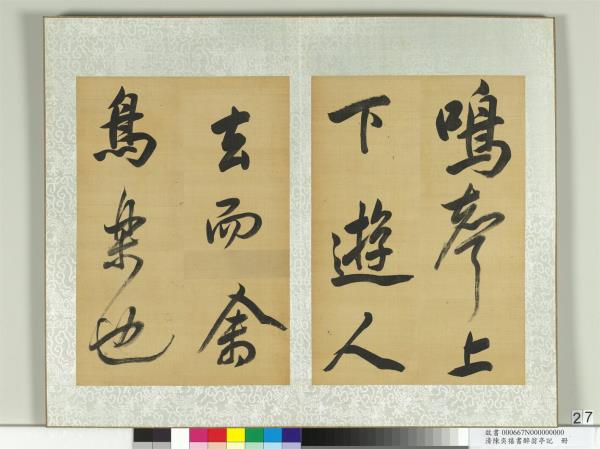 鳴聲上
下遊人
去而禽
鳥樂也
27
故書000667N000000000
清陳奕禧書醉翁亭記 冊